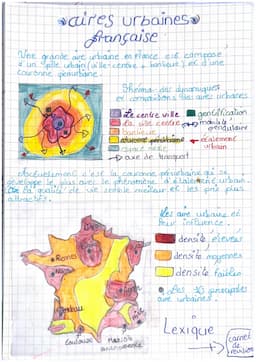 aires urbaines
française
Une grande aire urbaine en France est composé
d'un pôle urbain (ville centre + banlieue) et d'une
couronne périurbaine.
Schéma des dynamiques
et composition des aires urbaines
Le centre ville
gentrification
la ville centre
mobilité pendulaire
banlieue
étalement urbain
axe de transport
Actuellement c'est la couronne périurbaine qui se
développe le plus avec le phénomène d'étalement urbain.
la qualité de vie semble meilleur et les prix plus
attractifs.
Les aire urbaine et
leur influence.
densité élevées
densité moyennes
densité faibles
Les 10 principales
aire urbaines.
Toulouse
Lexique
carnet
de